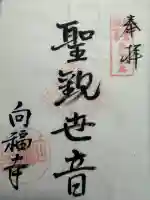 奉拝
聖観世音
向福寺